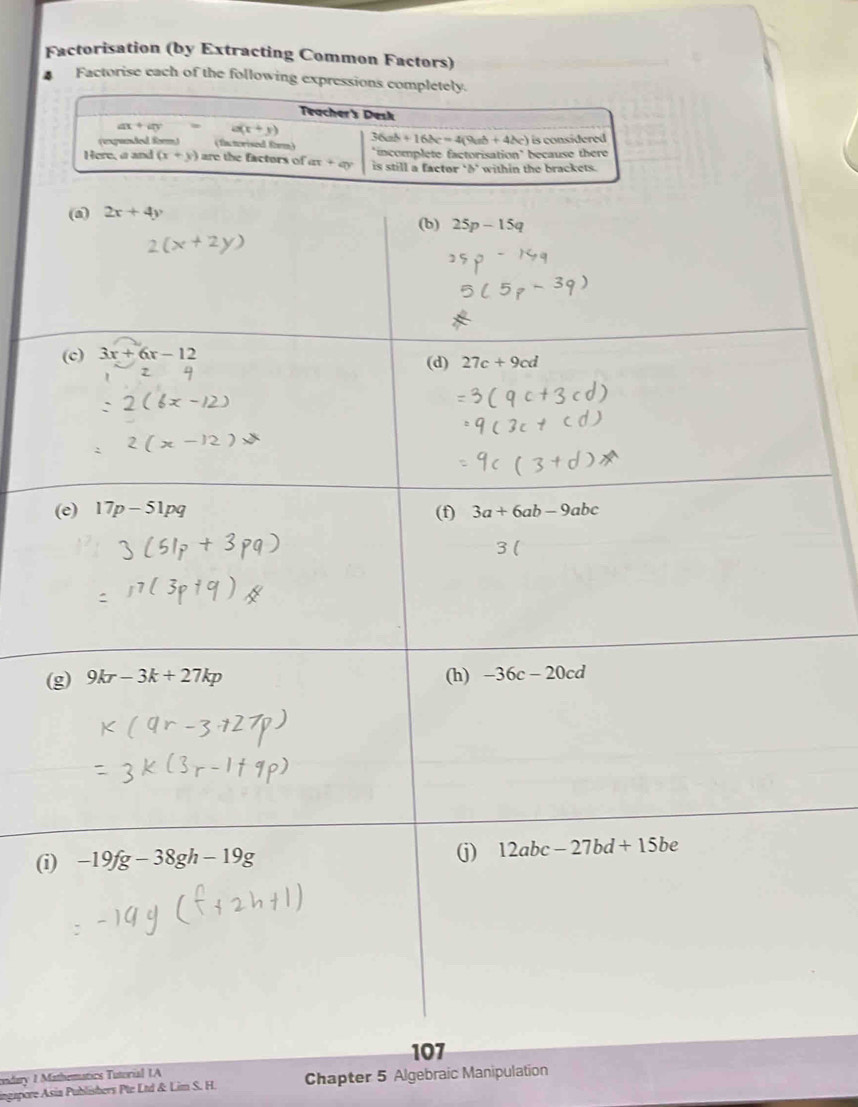 Factorisation (by Extracting Common Factors)
4 Factorise each of the following expressions completely.
Teacher's Desk
ax + ay = a(x + y)
(expanded form) (factorised form)
Here, a and (x + y) are the factors of ax + ay
36ab + 16bc = 4(9ab + 4bc) is considered
"incomplete factorisation" because there
is still a factor 'b' within the brackets.
(a) 2x + 4y
2(x+2y)
(b) 25p – 15q
25p - 15q
5(5p - 3q)
(c) 3x + 6x – 12
1 2 9
= 2(6x-12)
= 2(x-12)
(d) 27c + 9cd
=3(9c+3cd)
=9(3c+cd)
=9c(3+d)
(e) 17p – 51pq
3(51p + 3pq)
= 17(3p+q)
(f) 3a + 6ab – 9abc
3(
(g) 9kr – 3k + 27kp
k(9r-3+27p)
= 3k(3r-1+9p)
(h) –36c – 20cd
(i) –19fg – 38gh – 19g
= -19g(f+2h+1)
(j) 12abc – 27bd + 15be
107
ondary 1 Mathematics Tutorial 1A
ingapore Asia Publishers Pte Ltd & Lim S. H.
Chapter 5 Algebraic Manipulation